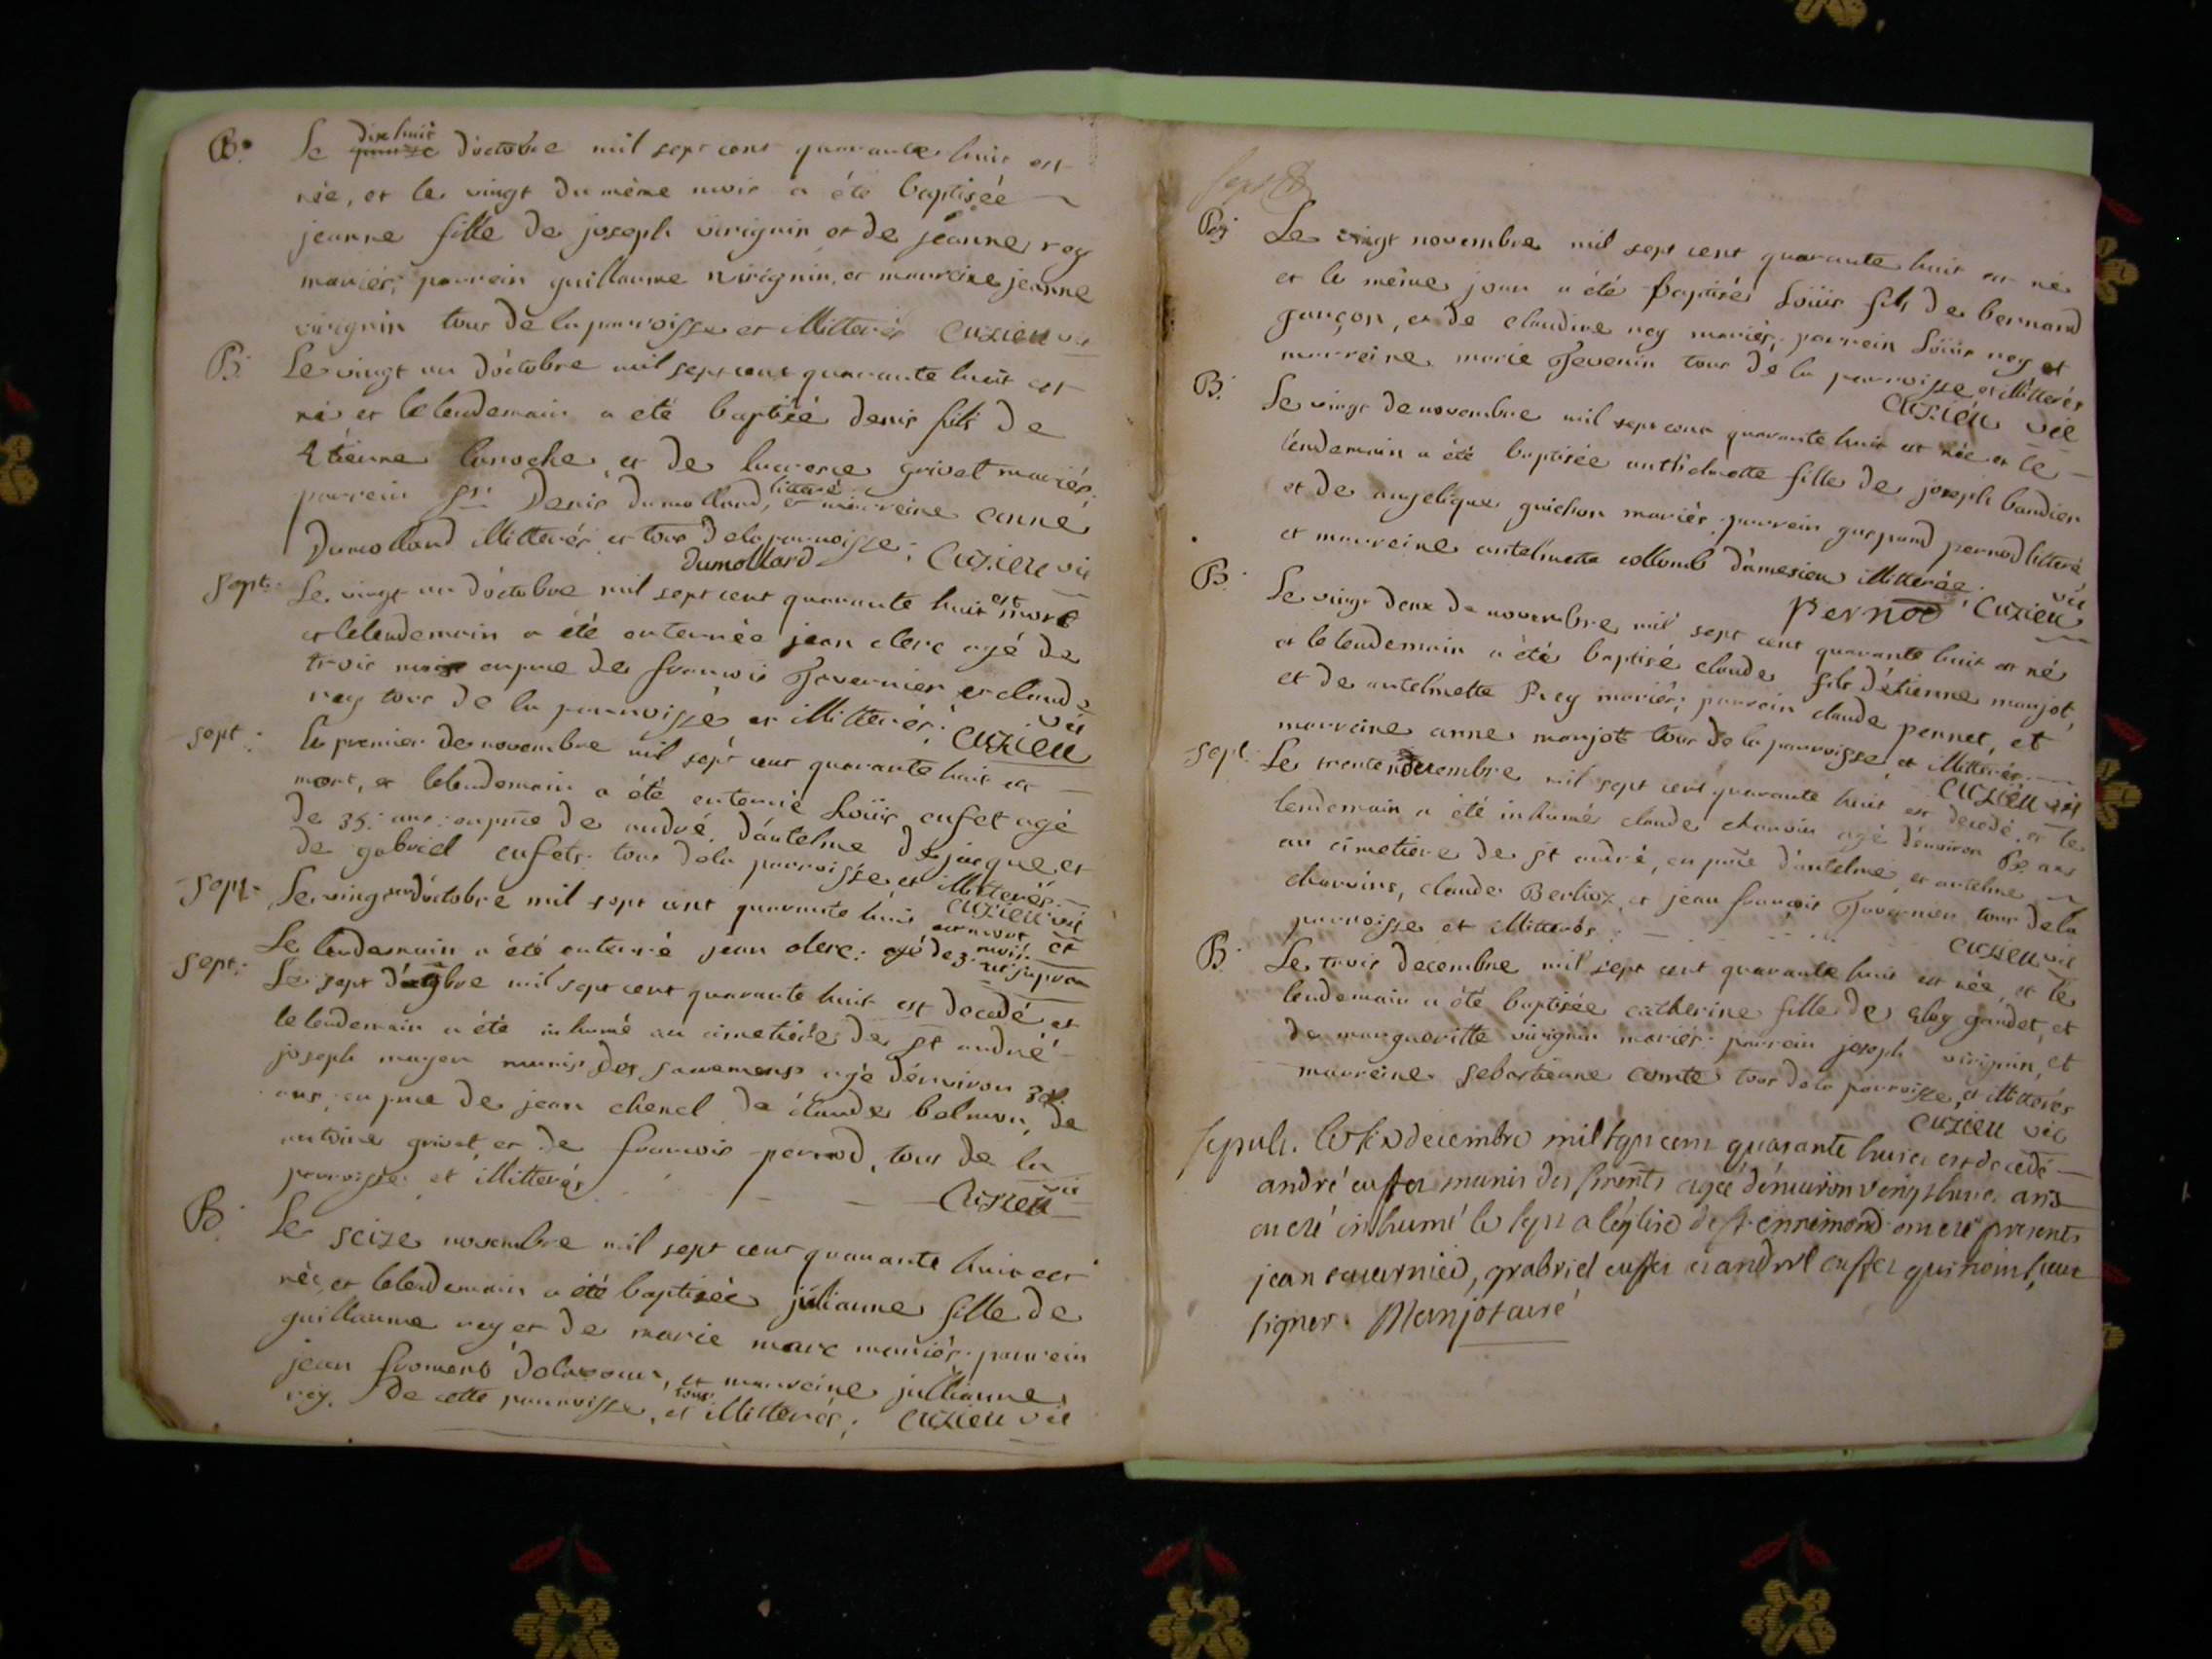 B. Le dix huit quinze d'octobre mil sept cent quarante huit est
née, et le vingt du même mois a été baptisée
jeanne fille de joseph virignin et de jeanne rey
mariés; parrein guillaume virignin, et marreine jeanne
virignin tous de la parroisse et illitterés Cuzieu vic
B. Le vingt un d'octobre mil sept cent quarante huit est
né et le lendemain a été baptisé denis fils de
Etienne et de lucresse grivet mariés.
parrein Sr. Denis dumollard, litteré et marreine anne
Dumollard illitterés et tous de la parroisse; Cuzieu vic
Dumollard
Sept. Le vingt un d'octobre mil sept cent quarante huit est mort
et le lendemain a été enterrée jean clerc agé de
trois mois en pnce de francois Tavernier et claude
rey tous de la parroisse et illitterés; Cuzieu vic
sept. Le premier de novembre mil sept cent quarante huit est
mort, et le lendemain a été enterrié Loüis cufet agé
de 35. ans: en pnce de andré, d'antelme de jacque et
de gabriel cufets: tous de la parroisse et illitterés
Cuzieu vic
Sept. Le vingt un d'octobre mil sept cent quarante huit est mort et
Le lendemain a été enterré jean clerc: agé de 3. mois. ut supra
Sept. Le sept d'obre mil sept cent quarante huit est decedé et
le lendemain a été inhumé au cimetiére de st andré
joseph mayer munis des sacremens agé d'environ
ans, en pnce de jean chenel de claude belmon, de
antoine grivet, et de francois pernod, tous de la
parroisse et illitterés Cuzieu vic
B. Le seize novembre mil sept cent quarante huit est
née, et le lendemain a été baptisée julianne fille de
guillaume rey et de marie marc mariés. parrein
jean froment et marreine jullianne
rey. de cette parroisse, et tous illitterés; Cuzieu vic
Sept
B. Le vingt novembre mil sept cent quarante huit est né
et le même jour a été baptisé Loüis fils de bernard
garçon, et de claudine rey mariés, parrein Loüis rey et
marreine marie Tevenin tous de la parroisse et illitterés
Cuzieu vic
B. Le vingt de novembre mil sept cent quarante huit est née et le
lendemain a été baptisée anthelmette fille de joseph baudier
et de angelique guichon mariés, parrein gaspard pernod litteré,
et marreine antelmette collomb d'amesieu illitterée.
Pernod Cuzieu vic
B. Le vingt deux de novembre mil sept cent quarante huit est né
et le lendemain a été baptisé claude fils d'étienne manjot,
et de antelmette Rey mariés; parrein claude pernet, et
marreine anne manjot tous de la parroisse et illitterés.
Cuzieu vic
Sept. Le trente novembre mil sept cent quarante huit est decedé, et le
lendemain a été inhumé claude charvin agé d'environ ans
au cimetiere de st andré, en pnce d'antelme et antelme
charvins, claude Berlioz, et jean françois Tavernier tous de la
parroisse et illitterés.
Cuzieu vic
B. Le trois decembre mil sept cent quarante huit est née et le
lendemain a été baptisée catherine fille de eloy gaudet, et
de margueritte virignin mariés: parrein joseph virignin, et
marreine sebastienne comte tous de la parroisse, et illitterés
Cuzieu vic
sepult. le six decembre mil sept cent quarante huict est decedé
andré cuffet munis des sments agé d'environ vingt huict ans
en été inhumé le sept a l'eglise de st ennimond ont été presents
jean tavernier, grabriel cuffet et andré cuffet qui n'ont sceut
signer. Manjot curé